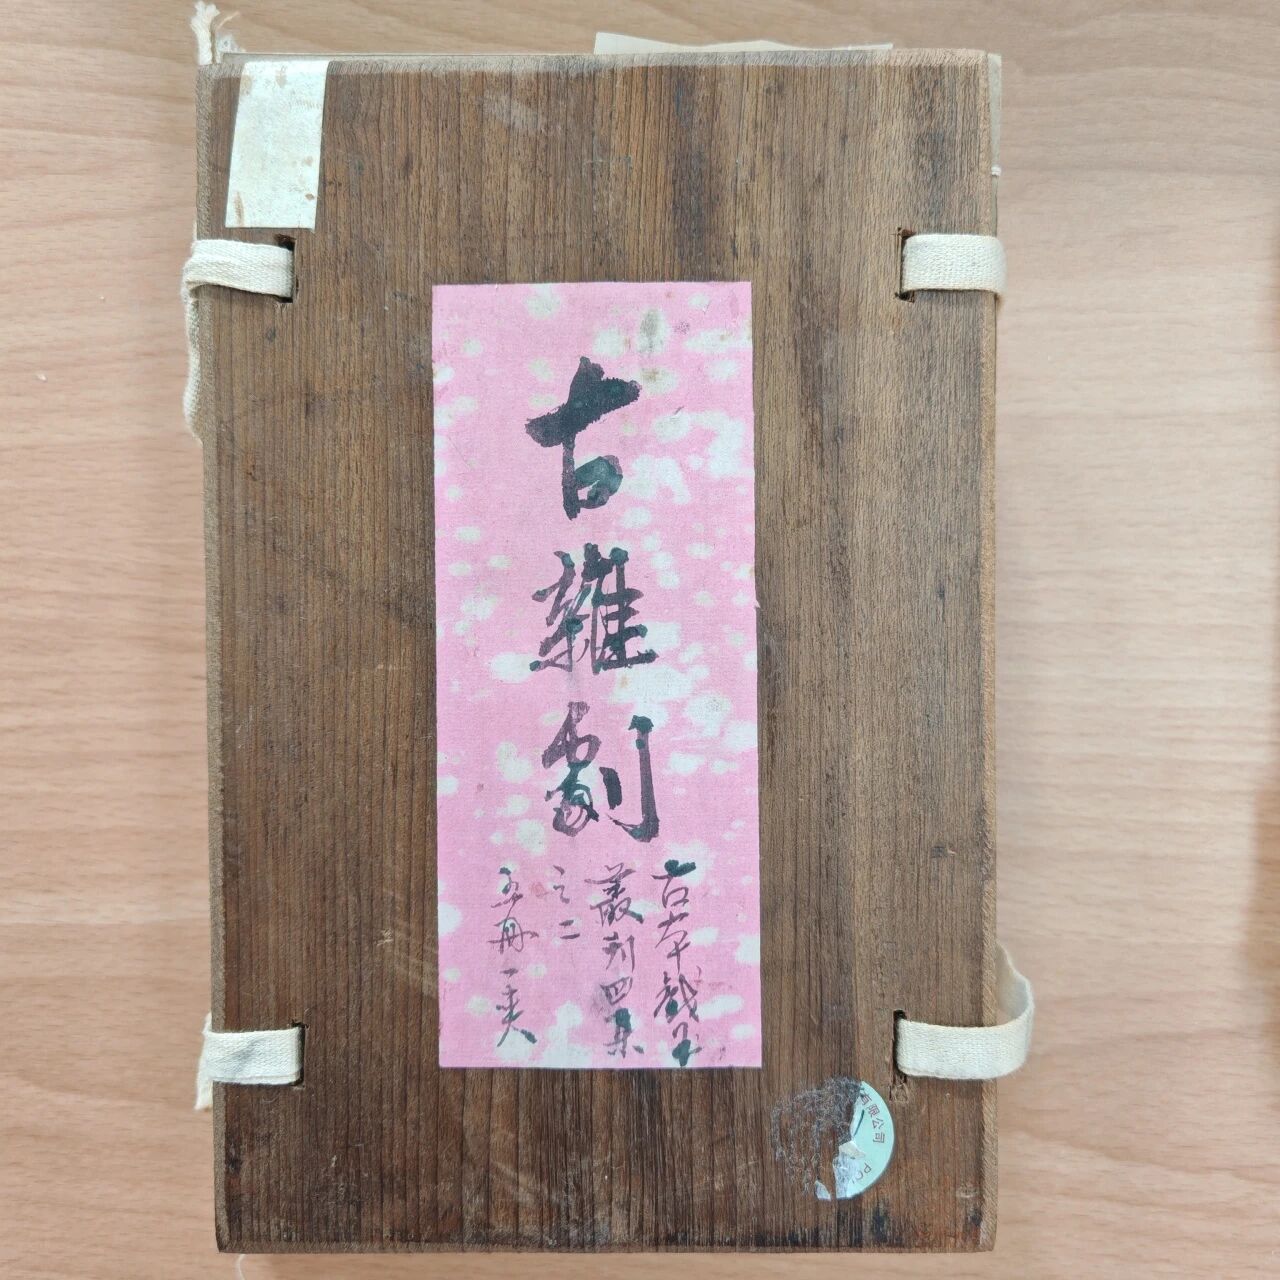 古雜劇
古本戲曲
叢刊四集
之二
五册一夾
有限公司